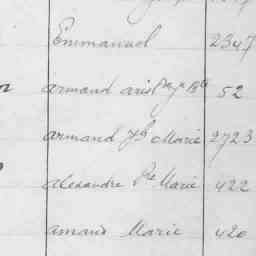 Emmanuel 2347
armand arist 52
armand Marie 2723
alexandre Marie 422
amand Marie 420